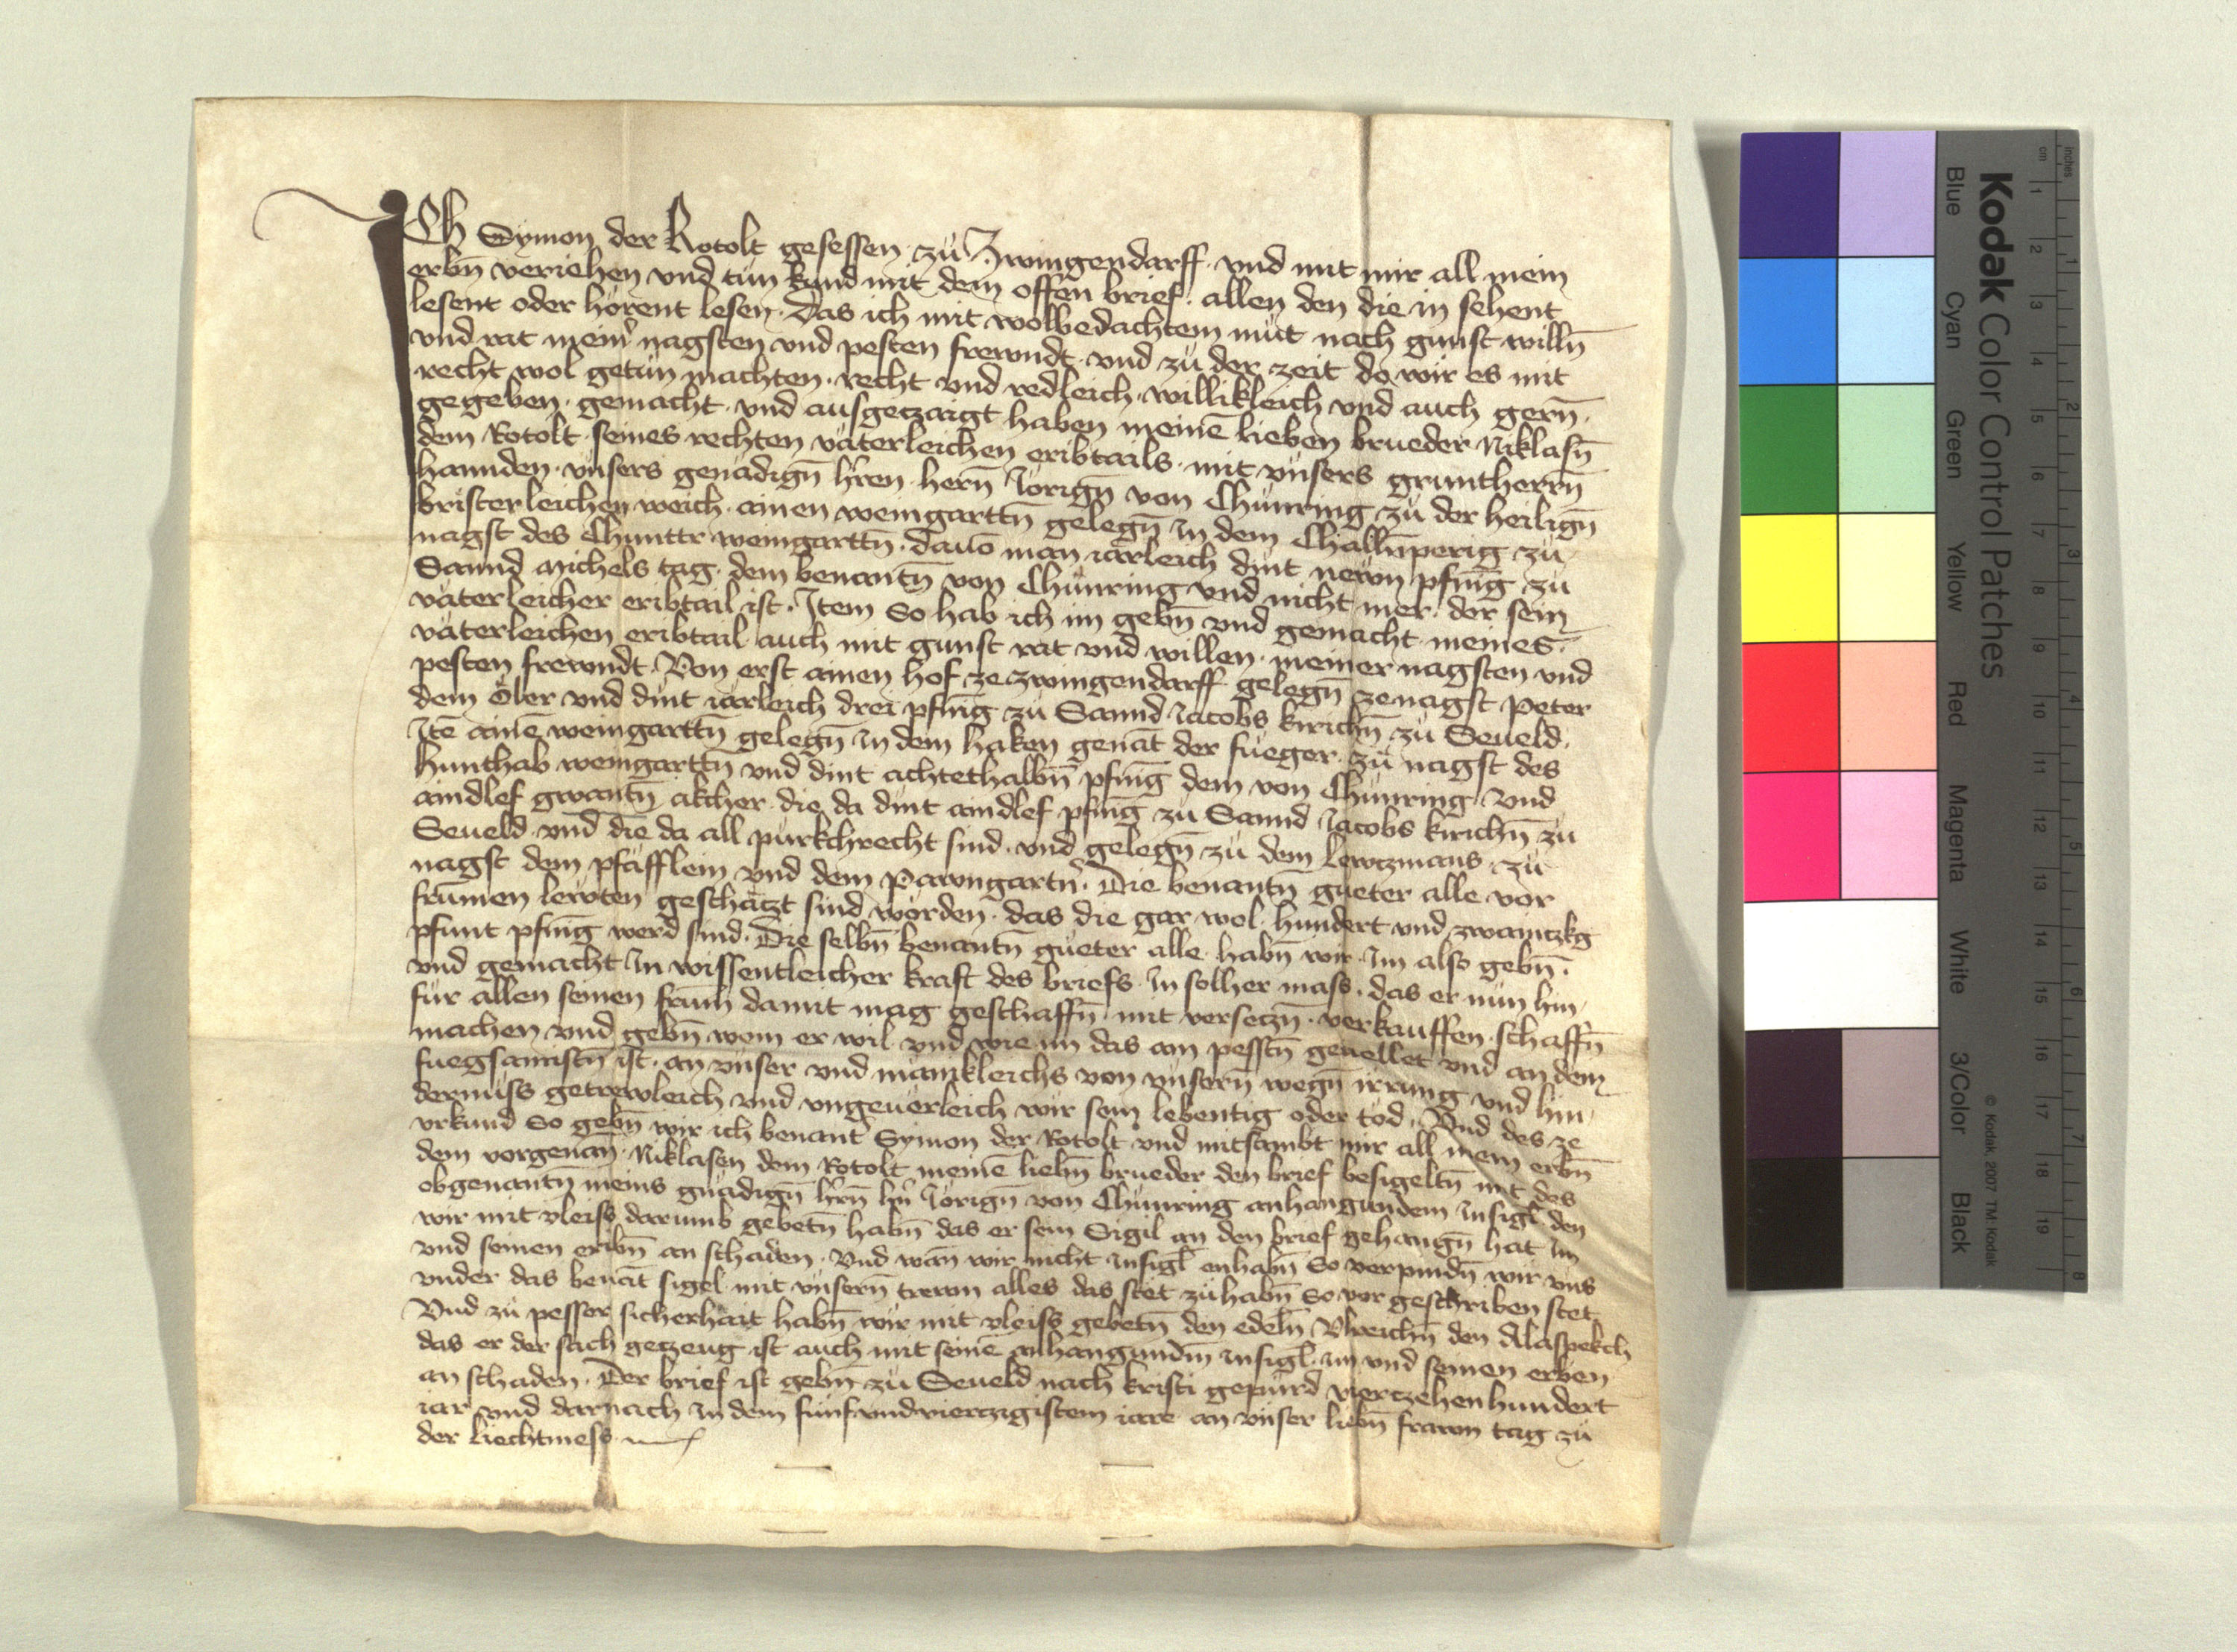 ICh Symon der Rotolt gesessen zu Zwingendarff vnd mit mir all mein
erbn̄ veriehen vnd tun kund mit dem offen brief allen den die in sehent
lesent oder hörent lesen Das ich mit wolbedachtem mut nach gunst willn̄
vnd rat meinr̄ nagsten vnd pesten frewndt vnd zu der zeit do wir es mit
recht wol getun machten recht vnd redleich willikleich vnd auch gern̄
gegeben gemacht vnd ausgeczaigt haben meinē lieben brueder Niklasn̄
dem Rotolt seines rechten väterleichen eribtails mit vnsers gruntherrn̄
hannden vnsers genädign̄ hr̄ren hern̄ Jorign̄ von Chunring zu der heilign̄
bristerleichen weich ainen weingarttn̄ gelegn̄ in dem Challn̄perig zu
nagst des Chuntter weingarttn̄ dauō man iarleich dint newn pfnīg zu
Sannd Michels tag dem benantn̄ von Chunring vnd nicht mer der sein
väterleicher eribtail ist Item So hab ich im gebn̄ vnd gemacht meines
väterleichen eribtail auch mit gunst rat vnd willen meiner nagsten vnd
pesten frewndt Von erst ainen hof ze zwingendarff gelegn̄ zenagst Peter
dem Öler vnd dint iarleich drei pfnīg zu Sannd Jacobs kirichn̄ zu Seueld
Itē ainē weingarttn̄ gelegn̄ in dem haken genāt der fueger zu nagst des
hunthab weingarttn̄ vnd dint achtethalbn̄ pfnīg dem von Chunring Vnd
aindlef gwantn̄ akcher die da dint aindlef pfnīg zu Sannd Jacobs kirichn̄ zu
Seueld vnd die da all purkchrecht sind vnd gelegn̄ zu dem Lewtzmans zu
nagst dem pfäfflein vnd dem Pawngartn̄ Die benantn̄ gueter alle vor
frumen lewten geschäczt sind worden das die gar wol hundert vnd zwainczkg
pfunt pfnīg werd sind Die selbn̄ benantn̄ gueter alle habn̄ wir im also gebn̄
vnd gemacht in wissentleicher kraft des briefs in solher mass das er nun hin
für allen seinen frum̄ damit mag geschaffn̄ mit verseczn̄ verkauffen schaffn̄
machen vnd gebn̄ wem er wil vnd wie im das am pesstn̄ geuellet vnd an dem
fuegsamistn̄ ist an vnser vnd manikleichs von vnsern̄ wegn̄ irrung vnd hin
dernüss getrewleich vnd vngeuerleich wir sein lebentig oder tod Vnd des ze
vrkund So gebn̄ wir ich benant Symon der Rotolt vnd mitsambt mir all mein erbn̄
dem vorgenan̄ Niklasen dem Rotolt meinē liebn̄ brueder den brief besigeltn̄ mit des
obgenantn̄ meins gnädign̄ hr̄n hn̄ Jorign̄ von Chunring anhangundem insigl den
wir mit vleiss darumb gebetn̄ habn̄ das er sein Sigil an den brief gehangn̄ hat im
vnd seinen eribn̄ an schaden Vnd wan̄ wir nicht insigl enhabn̄ So verpindn̄ wir vns
vnder das benāt sigel mit vnsern̄ trewn alles das stet zuhabn̄ So vor geschriben stet
Vnd zu pesser sicherhait habn̄ wir mit vleiss gebetn̄ den edeln̄ Vlreichn̄ den Alaspekch
das er der sach geczeug ist auch mit seinē anhangundm̄ insigl im vnd seinen erben
an schaden Der brief ist gebn̄ zu Seueld nach kristi gepurd vierczehenhundert
iar vnd darnach in dem funfundvierczigistem iare an vnser liebn̄ frawn tag zu
der liechtmess
Kodak Color Control Patches
Blue Cyan Green Yellow Red Magenta White 3/Color Black
© Kodak, 2007 TM: Kodak
inches 1 2 3 4 5 6 7 8
cm 1 2 3 4 5 6 7 8 9 10 11 12 13 14 15 16 17 18 19